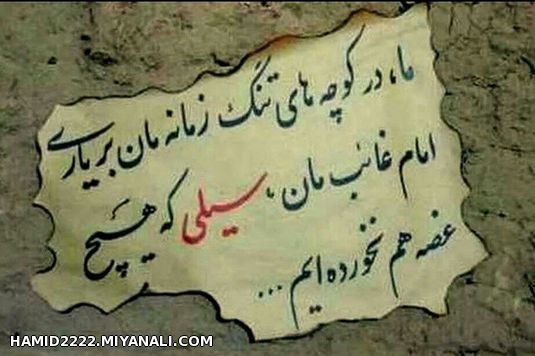 ما، در کوچه های تنگ زمانه مان بر یاری
امام غائب مان، سیلی که هیچ
غصه هم نخورده ایم ...
HAMID2222.MIYANALI.COM